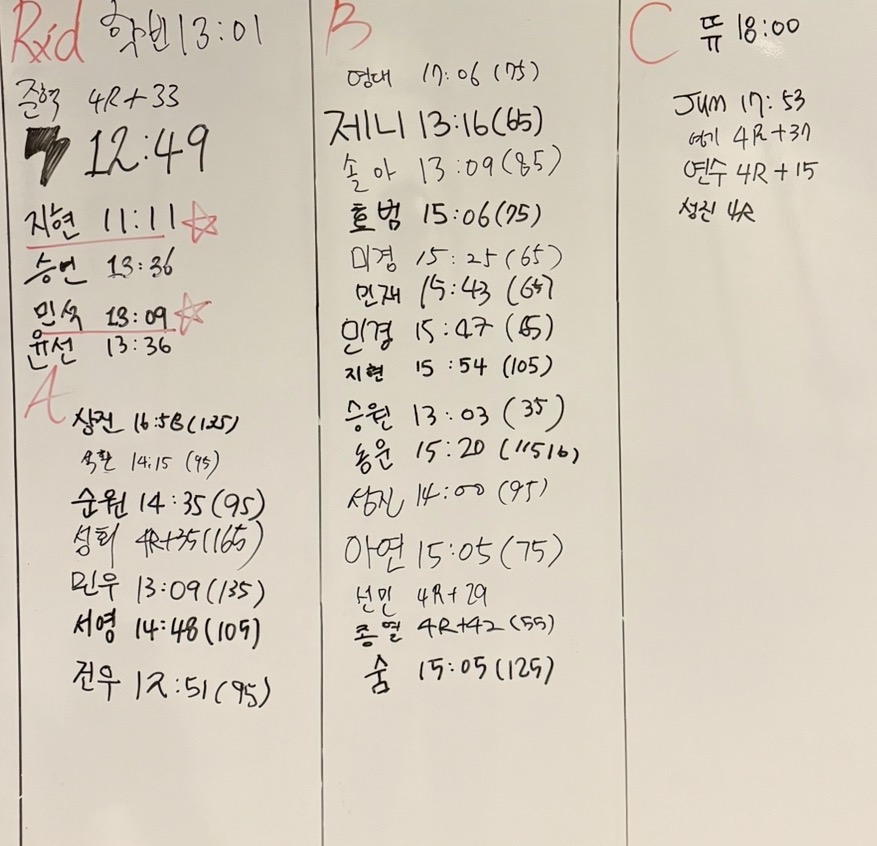 Rxd 학빈 13:01
준혁 4R+33
12:49
지현 11:11
승언 13:36
민석 13:09
윤선 13:36
A
상진 16:58(125)
석환 14:15 (95)
순원 14:35(95)
성희 4R+35(165)
민우 13:09(135)
서영 14:48(105)
전우 12:51(95)
B
영대 17:06 (75)
제니 13:16(65)
솔아 13:09(85)
효범 15:06(75)
미경 15:25(65)
민재 15:43 (65)
민경 15:47
지현 15:54 (105)
승원 13:03 (35)
동운 15:20 (115lb)
성진 14:00 (95)
아연 15:05(75)
선민 4R+29
종열 4R+42(55)
숨 15:05(125)
C 뜌 18:00
JUM 17:53
4R+37
연수 4R+15
성진 4R